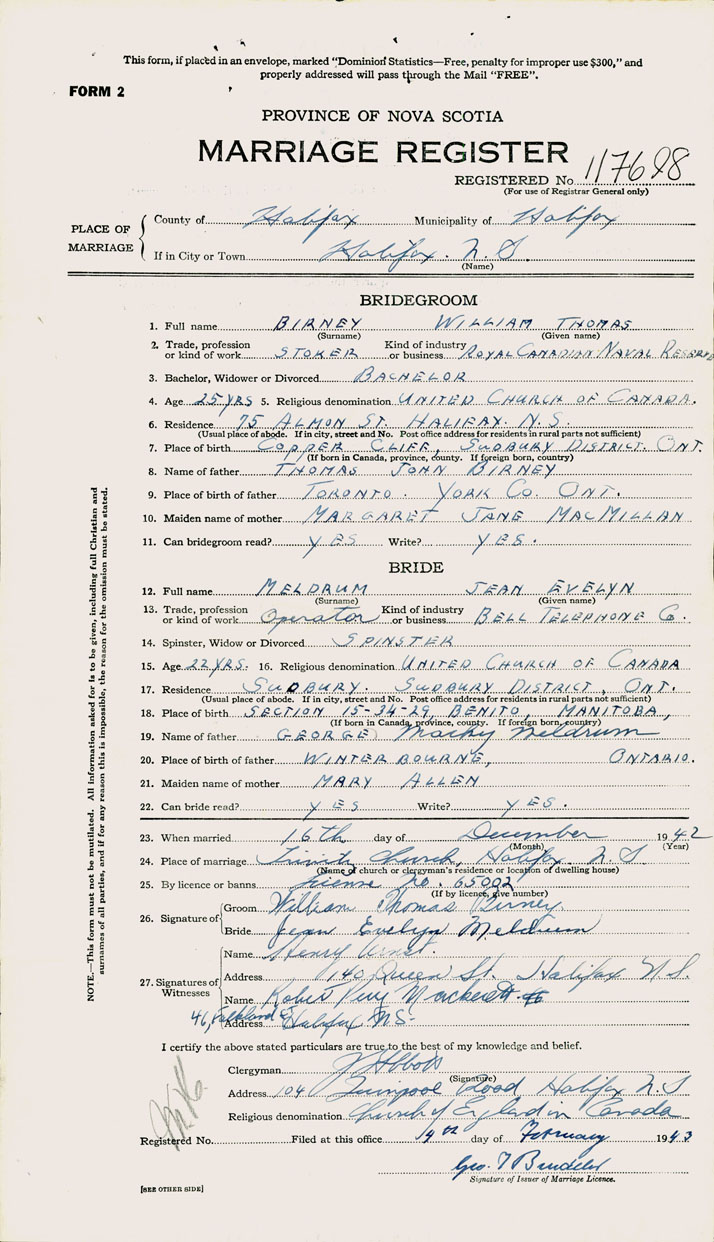 This form, if placed in an envelope, marked "Dominion Statistics—Free, penalty for improper use $300," and
properly addressed will pass through the Mail "FREE".
FORM 2
PROVINCE OF NOVA SCOTIA
MARRIAGE REGISTER
REGISTERED No. 117698
(For use of Registrar General only)
PLACE OF MARRIAGE
County of Halifax Municipality of Halifax
If in City or Town Halifax. N.S.
(Name)
BRIDEGROOM
1. Full name BIRNEY WILLIAM THOMAS
(Surname) (Given name)
2. Trade, profession or kind of work STOKER Kind of industry or business ROYAL CANADIAN NAVAL RESERVE
3. Bachelor, Widower or Divorced BACHELOR
4. Age 25 YRS 5. Religious denomination UNITED CHURCH OF CANADA.
6. Residence 75 ALMON ST. HALIFAX. N.S.
(Usual place of abode. If in city, street and No. Post office address for residents in rural parts not sufficient)
7. Place of birth COPPER CLIFF, SUDBURY DISTRICT ONT.
(If born in Canada, province, county. If foreign born, country)
8. Name of father THOMAS JOHN BIRNEY
9. Place of birth of father TORONTO. YORK CO. ONT.
10. Maiden name of mother MARGARET JANE MACMILLAN
11. Can bridegroom read? YES Write? YES.
BRIDE
12. Full name MELDRUM JEAN EVELYN
(Surname) (Given name)
13. Trade, profession or kind of work Operator Kind of industry or business BELL TELEPHONE CO.
14. Spinster, Widow or Divorced SPINSTER
15. Age 22 YRS. 16. Religious denomination UNITED CHURCH OF CANADA
17. Residence SUDBURY. SUDBURY DISTRICT, ONT.
(Usual place of abode. If in city, street and No. Post office address for residents in rural parts not sufficient)
18. Place of birth SECTION 15-34-29, BENITO, MANITOBA,
(If born in Canada, province, county. If foreign born, country)
19. Name of father GEORGE Macky Meldrum
20. Place of birth of father WINTERBOURNE, ONTARIO.
21. Maiden name of mother MARY ALLEN
22. Can bride read? YES Write? YES.
23. When married 16th day of December 1942
(Month) (Year)
24. Place of marriage Trinity Church, Halifax N S
(Name of church or clergyman's residence or location of dwelling house)
25. By licence or banns license no. 65002
(If by licence, give number)
26. Signature of
Groom William Thomas Birney.
Bride Jean Evelyn Meldrum
27. Signatures of Witnesses
Name Henry
Address 140 Queen St. Halifax N.S.
Name Percy
46, Falkland St
Address Halifax NS.
I certify the above stated particulars are true to the best of my knowledge and belief.
Clergyman Abbott
(Signature)
Address 104 Quinpool Road Halifax N S
Religious denomination Church of England in Canada
Registered No. Filed at this office 19th day of February 1943
Geo. T
Signature of Issuer of Marriage Licence.
[SEE OTHER SIDE]
NOTE.—This form must not be mutilated. All information asked for is to be given, including full Christian and
surnames of all parties, and if for any reason this is impossible, the reason for the omission must be stated.